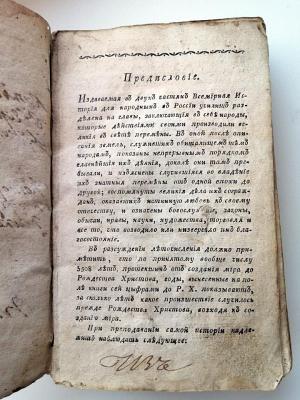 Предисловіе.
Издаваемая въ двухъ частяхъ Всемірная Ис-
торія для народныхъ въ Россіи училищъ раз-
дѣлена на главы, заключающія въ себѣ народы,
которые дѣйствіями своими производили ве-
ликія въ свѣтѣ перемѣны. Въ оной послѣ опи-
санія земель, служившихъ обиталищемъ тѣмъ
народамъ, показаны непрерывнымъ порядкомъ
главнѣйшія ихъ дѣянія, доколѣ они тамъ пребы-
вали, и изъяснены случившіяся во владѣніе
ихъ знатныя перемѣны отъ одной епохи до
другой; воспомянуты великія дѣла ихъ сограж-
данъ, оказавшихъ истинную любовь къ своему
отечеству, и означены богослуженіе, законы,
обычаи, нравы, науки, художества, торговля и
все то, что возводило или низвергало ихъ бла-
госостояніе.
Въ разсужденіи лѣтосчисленія должно при-
мѣтить, что по принятому вообще числу
5508 лѣтъ, протекшихъ отъ созданія міра до
Рождества Христова, годы, вынесенные на по-
лѣ книги сей цыфрами до Р. Х. показываютъ,
за сколько лѣтъ какое произшествіе случилось
прежде Рождества Христова, восходя къ со-
зданію міра.
При преподаваніи самой исторіи надле-
житъ наблюдать слѣдующее: